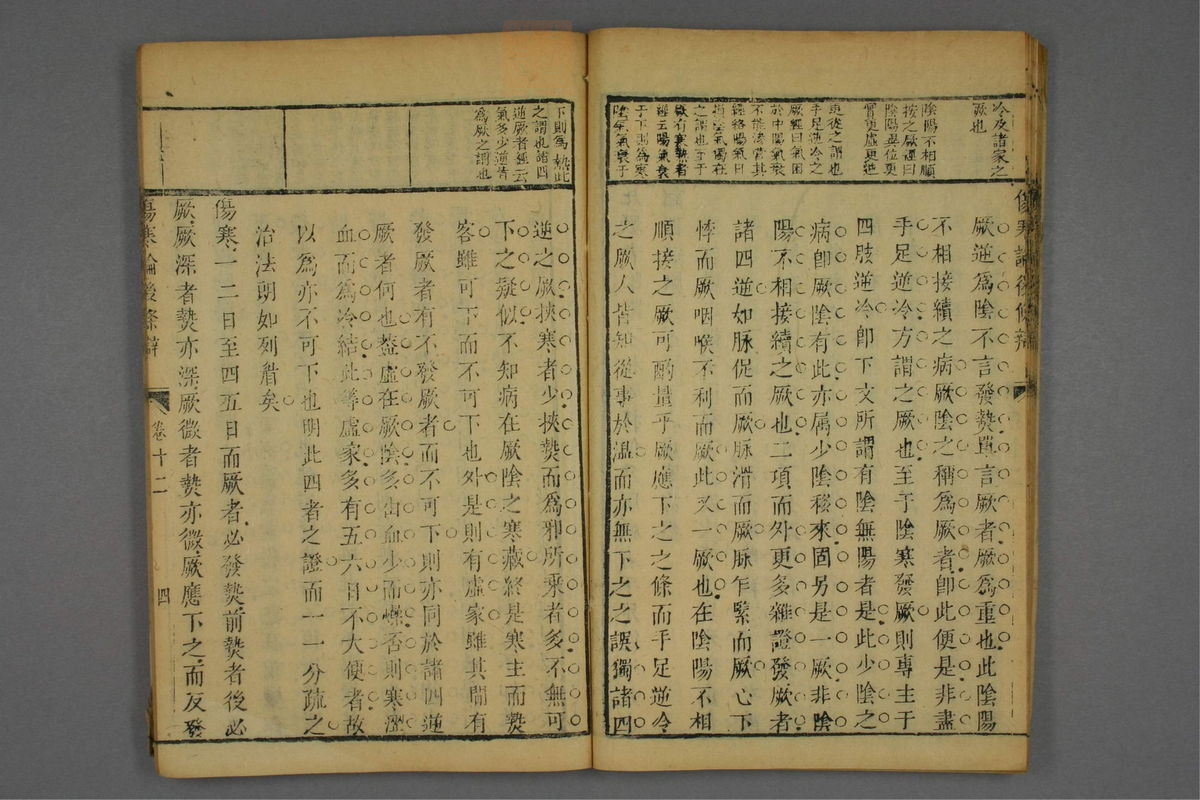 冷及諸家之
厥也
陰陽不相順
按之厥經曰
陰陽異位更
實更虛更逆
更從之謂也
手足逆冷之
厥經曰氣困
於中陽氣衰
不能滲營其
經絡陽氣日
損陰氣獨在
之謂也至于
厥有寒熱者
經云陽氣衰
于下則為寒
陰氣衰于
厥逆為陰不言發𤍠單言厥者厥為重也此陰陽
不相接續之病厥陰之稱為厥者卽此便是非盡
手足逆冷方謂之厥也至于陰寒發厥則專主于
四肢逆冷卽下文所謂有陰無陽者是此少陰之
病卽厥陰有此亦属少陰移來固另是一厥非陰
陽不相接續之厥也二項而外更多雜證發厥者
諸四逆如脉促而厥脉滑而厥脉乍緊而厥心下
悸而厥咽喉不利而厥此又一厥也在陰陽不相
順接之厥可酌量乎厥應下之之條而手足逆冷
之厥人皆知從事於温而亦無下之之誤獨諸四
下則為𤍠此
之謂也諸四
逆厥者經云
氣多少逆皆
為厥之謂也
逆之厥挾寒者少挾𤍠而為邪所乘者多不無可
下之疑似不知病在厥陰之寒藏終是寒主而𤍠
客雖可下而不可下也外是則有虛家雖其間有
發厥者有不發厥者而不可下則亦同於諸四逆
厥者何也葢虛在厥陰多由血少而爍否則寒澀
血而為冷結此等虛家多有五六日不大便者故
以為亦不可下也明此四者之證而一一分疏之
治法朗如列眉矣
傷寒一二日至四五日而厥者必發𤍠前𤍠者後必
厥厥深者𤍠亦深厥微者𤍠亦微厥應下之而反發
傷寒論後條辯
卷十二
四